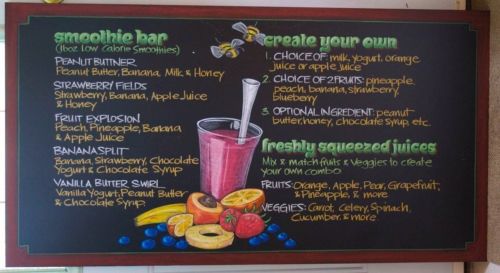 smoothie bar
(16oz Low Calorie Smoothies)
PEANUT BUTTNER
Peanut Butter, Banana, Milk & Honey
STRAWBERRY FIELDS
Strawberry, Banana, Apple Juice
& Honey
FRUIT EXPLOSION
Peach, Pineapple, Banana
& Apple Juice
BANANA SPLIT
Banana, Strawberry, Chocolate
Yogurt & Chocolate Syrup
VANILLA BUTTER SWIRL
Vanilla Yogurt, Peanut Butter
& Chocolate Syrup
create your own
1. CHOICE OF: milk, yogurt, orange
juice or apple juice
2. CHOICE OF 2 FRUITS: pineapple,
peach, banana, strawberry,
blueberry
3. OPTIONAL INGREDIENT: peanut
butter, honey, chocolate syrup, etc.
freshly squeezed juices
Mix & match fruits & Veggies to create
your own combo
FRUITS: Orange, Apple, Pear, Grapefruit,
& Pineapple, & more
VEGGIES: Carrot, Celery, Spinach,
Cucumber & more